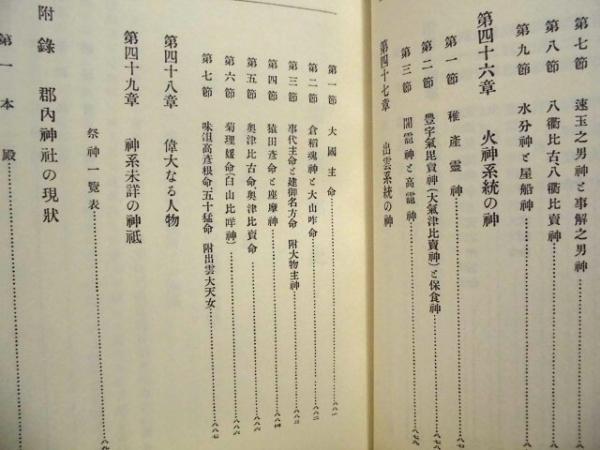 第七節 速玉之男神と事解之男神
第八節 八衢比古八衢比賣神
第九節 水分神と屋船神
第四十六章 火神系統の神
第一節 稚產靈神
第二節 豐宇氣毘賣神(大氣津比賣神)と保食神
第三節 闇龗神と高龗神
第四十七章 出雲系統の神
第一節 大國主命 八八一
第二節 倉稻魂神と大山咋命 八八二
第三節 事代主命と建御名方命 附大物主神
第四節 猿田彥命と座摩神
第五節 奧津比古命、奧津比賣命 八八六
第六節 菊理媛命(白山比咩神) 八八六
第七節 味耜高彥根命、五十猛命 附出雲大天女 八八七
第四十八章 偉大なる人物
第四十九章 神系未詳の神祇
祭神一覽表
附錄 郡內神社の現狀
第一 本殿